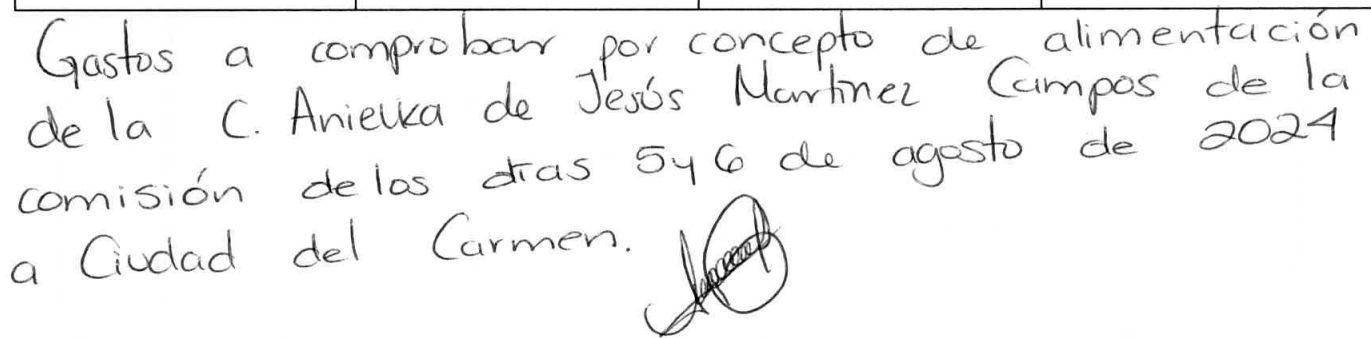 Gastos a comprobar por concepto de alimentación
de la C. Anielka de Jesús Martinez Campos de la
comisión de los días 5 y 6 de agosto de 2024
a Ciudad del Carmen.